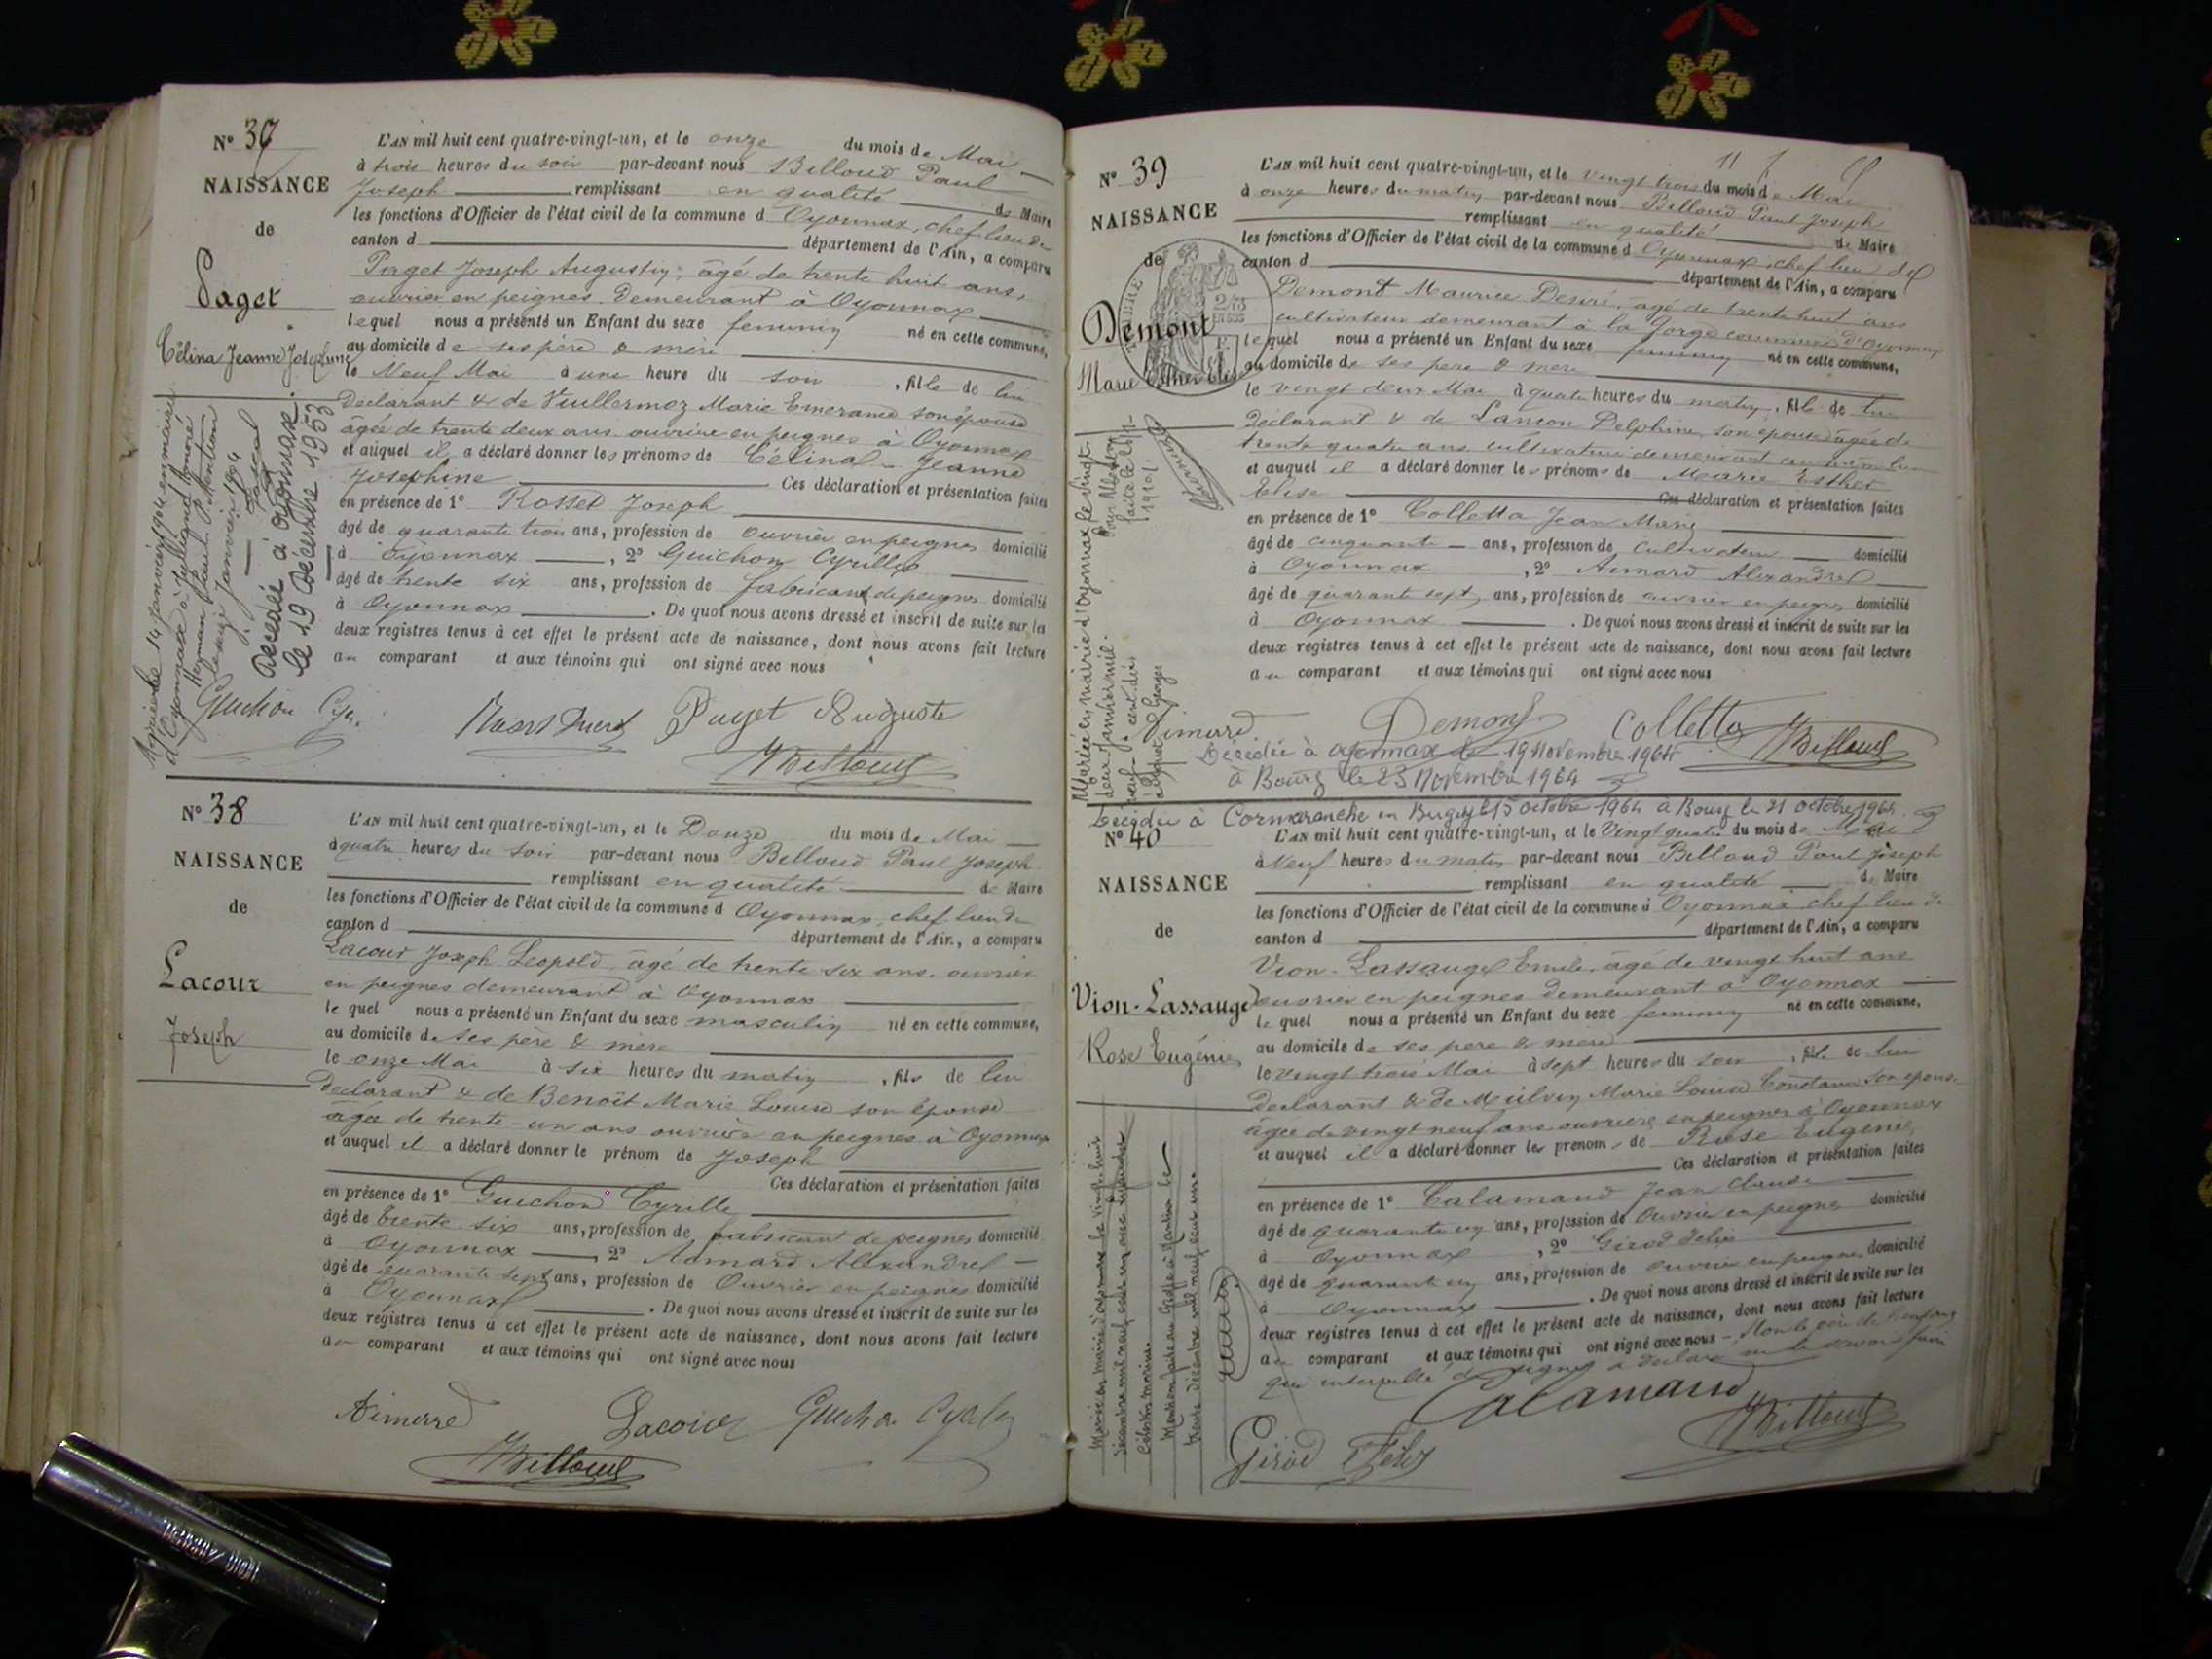 N° 37
NAISSANCE
de
Paget
Célina Jeanne Joséphine
Décédée à Oyonnax
le 19 Décembre 1953
L'AN mil huit cent quatre-vingt-un, et le onze du mois de Mai
à trois heures du soir par-devant nous Billoud Paul
Joseph remplissant en qualité de Maire
les fonctions d'Officier de l'état civil de la commune d Oyonnax, chef lieu de
canton d département de l'Ain, a comparu
Paget Joseph Augustin, âgé de trente huit ans,
ouvrier en peignes demeurant à Oyonnax
lequel nous a présenté un Enfant du sexe feminin né en cette commune,
au domicile de ses père & mère
le Neuf Mai à une heure du soir, fille de lui
Déclarant & de Vuillermoz Marie Emerance son épouse
âgée de trente deux ans ouvrière en peignes à Oyonnax
et auquel il a déclaré donner les prénoms de Célina Jeanne
Josephine Ces déclaration et présentation faites
en présence de 1° Rosset Joseph
âgé de quarante trois ans, profession de ouvrier en peignes domicilié
à Oyonnax, 2° Guichon Cyrille
âgé de trente six ans, profession de fabricant de peignes domicilié
à Oyonnax. De quoi nous avons dressé et inscrit de suite sur les
deux registres tenus à cet effet le présent acte de naissance, dont nous avons fait lecture
au comparant et aux témoins qui ont signé avec nous
Paget Auguste
Billoud
N° 38
NAISSANCE
de
Lacour
Joseph
L'AN mil huit cent quatre-vingt-un, et le Douze du mois de Mai
à quatre heures du soir par-devant nous Billoud Paul Joseph
remplissant en qualité de Maire
les fonctions d'Officier de l'état civil de la commune d Oyonnax, chef lieu de
canton d département de l'Ain, a comparu
Lacour Joseph Léopold, âgé de trente six ans ouvrier
en peignes demeurant à Oyonnax
lequel nous a présenté un Enfant du sexe masculin né en cette commune,
au domicile de ses père & mère
le onze Mai à six heures du matin, fils de lui
Déclarant & de Benoît Marie Louise son épouse
âgée de trente-un ans ouvrière en peignes à Oyonnax
et auquel il a déclaré donner le prénom de Joseph
Ces déclaration et présentation faites
en présence de 1° Guichon Cyrille
âgé de trente six ans, profession de fabricant de peignes domicilié
à Oyonnax 2° Aimard Alexandre
âgé de quarante sept ans, profession de Ouvrier en peignes domicilié
à Oyonnax. De quoi nous avons dressé et inscrit de suite sur les
deux registres tenus à cet effet le présent acte de naissance, dont nous avons fait lecture
au comparant et aux témoins qui ont signé avec nous
Lacour
Billoud
N° 39
NAISSANCE
de
Demont
Marie Esther Elise
L'AN mil huit cent quatre-vingt-un, et le vingt trois du mois de Mai
à onze heures du matin par-devant nous Billoud Paul Joseph
remplissant en qualité de Maire
les fonctions d'Officier de l'état civil de la commune d Oyonnax, chef lieu de
canton d département de l'Ain, a comparu
Demont Maurice Desiré, âgé de trente huit ans
cultivateur demeurant à la Forge commune d'Oyonnax
lequel nous a présenté un Enfant du sexe feminin né en cette commune,
au domicile de ses pere & mere
le vingt deux Mai à quatre heures du matin, fille de lui
Déclarant & de Lançon Delphine, son épouse âgée de
trente quatre ans cultivatrice demeurant au même lieu
et auquel il a déclaré donner les prénoms de Marie Esther
Elise Ces déclaration et présentation faites
en présence de 1° Colletta Jean Marie
âgé de cinquante ans, profession de Cultivateur domicilié
à Oyonnax, 2° Aimard Alexandre
âgé de quarante sept ans, profession de ouvrier en peignes domicilié
à Oyonnax. De quoi nous avons dressé et inscrit de suite sur les
deux registres tenus à cet effet le présent acte de naissance, dont nous avons fait lecture
au comparant et aux témoins qui ont signé avec nous
Demont Colletta Billoud
Décédée à Oyonnax le 19 Novembre 1964
à Bourg le 23 Novembre 1964
Décédée à Cormaranche en Bugey le 15 octobre 1964 à Bourg le 21 octobre 1964
N° 40
NAISSANCE
de
Vion-Lassauge
Rose Eugénie
L'AN mil huit cent quatre-vingt-un, et le Vingt quatre du mois de Mai
à Neuf heures du matin par-devant nous Billoud Paul Joseph
remplissant en qualité de Maire
les fonctions d'Officier de l'état civil de la commune d Oyonnax chef lieu de
canton d département de l'Ain, a comparu
Vion-Lassauge Emile, âgé de vingt huit ans
ouvrier en peignes demeurant à Oyonnax
lequel nous a présenté un Enfant du sexe feminin né en cette commune,
au domicile de ses pere & mere
le vingt trois Mai à sept heures du soir, fille de lui
Declarant & de Marie Louise son épouse
âgée de vingt neuf ans ouvrière en peignes à Oyonnax
et auquel il a déclaré donner les prénoms de Rose Eugénie
Ces déclaration et présentation faites
en présence de 1° Calamand Jean Claude
âgé de quarante un ans, profession de Ouvrier en peignes domicilié
à Oyonnax, 2° Girod Félix
âgé de quarante un ans, profession de ouvrier en peignes domicilié
à Oyonnax. De quoi nous avons dressé et inscrit de suite sur les
deux registres tenus à cet effet le présent acte de naissance, dont nous avons fait lecture
au comparant et aux témoins qui ont signé avec nous
Calamand
Girod Félix
Billoud